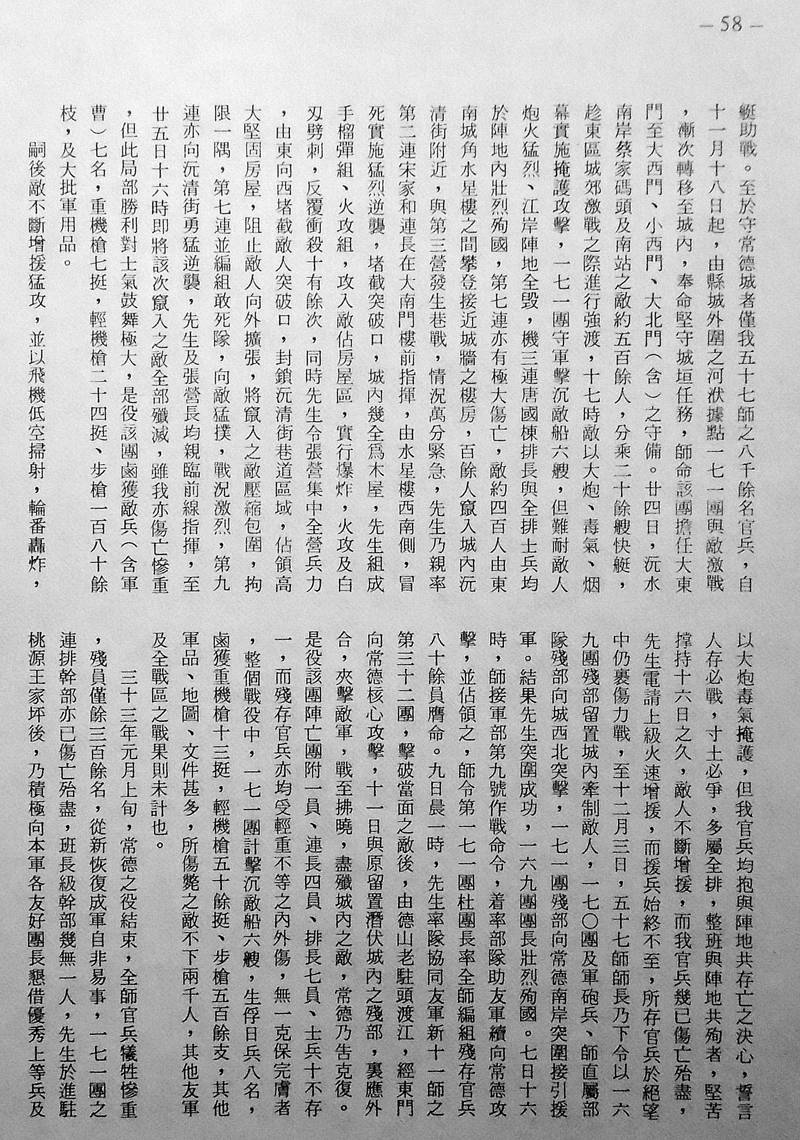 — 58 —
艇助戰。至於守常德城者僅我五十七師之八千餘名官兵，自
十一月十八日起，由縣城外圍之河洑據點一七一團與敵激戰
，漸次轉移至城內，奉命堅守城垣任務，師命該團擔任大東
門至大西門、小西門、大北門（含）之守備。廿四日，沅水
南岸蔡家碼頭及南站之敵約五百餘人，分乘二十餘艘快艇，
趁東區城郊激戰之際進行強渡，十七時敵以大炮、毒氣、烟
幕實施掩護攻擊，一七一團守軍擊沉敵船六艘，但難耐敵人
炮火猛烈、江岸陣地全毀，機三連唐國棟排長與全排士兵均
於陣地內壯烈殉國，第七連亦有極大傷亡，敵約四百人由東
南城角水星樓之間攀登接近城牆之樓房，百餘人竄入城內沅
清街附近，與第三營發生巷戰，情況萬分緊急，先生乃親率
第二連宋家和連長在大南門樓前指揮，由水星樓西南側，冒
死實施猛烈逆襲，堵截突破口，城內幾全爲木屋，先生組成
手榴彈組、火攻組，攻入敵佔房屋區，實行爆炸，火攻及白
刃劈刺，反覆衝殺十有餘次，同時先生令張營集中全營兵力
，由東向西堵截敵人突破口，封鎖沅清街巷道區域，佔領高
大堅固房屋，阻止敵人向外擴張，將竄入之敵壓縮包圍，拘
限一隅，第七連並編組敢死隊，向敵猛撲，戰況激烈，第九
連亦向沅清街勇猛逆襲，先生及張營長均親臨前線指揮，至
廿五日十六時即將該次竄入之敵全部殲滅，雖我亦傷亡慘重
，但此局部勝利對士氣鼓舞極大，是役該團鹵獲敵兵（含軍
曹）七名，重機槍七挺，輕機槍二十四挺、步槍一百八十餘
枝，及大批軍用品。
嗣後敵不斷增援猛攻，並以飛機低空掃射，輪番轟炸，
以大炮毒氣掩護，但我官兵均抱與陣地共存亡之決心，誓言
人存必戰，寸土必爭，多屬全排，整班與陣地共殉者，堅苦
撐持十六日之久，敵人不斷增援，而我官兵幾已傷亡殆盡，
先生電請上級火速增援，而援兵始終不至，所存官兵於絕望
中仍裹傷力戰，至十二月三日，五十七師師長乃下令以一六
九團殘部留置城內牽制敵人，一七〇團及軍砲兵、師直屬部
隊殘部向城西北突擊，一七一團殘部向常德南岸突圍接引援
軍。結果先生突圍成功，一六九團團長壯烈殉國。七日十六
時，師接軍部第九號作戰命令，着率部隊助友軍續向常德攻
擊，並佔領之，師令第一七一團杜團長率全師編組殘存官兵
八十餘員膺命。九日晨一時，先生率隊協同友軍新十一師之
第三十二團，擊破當面之敵後，由德山老駐頭渡江，經東門
向常德核心攻擊，十一日與原留置潛伏城內之殘部，裏應外
合，夾擊敵軍，戰至拂曉，盡殲城內之敵，常德乃告克復。
是役該團陣亡團附一員、連長四員、排長七員、士兵十不存
一，而殘存官兵亦均受輕重不等之內外傷，無一克保完膚者
，整個戰役中，一七一團計擊沉敵船六艘，生俘日兵八名，
鹵獲重機槍十三挺，輕機槍五十餘挺、步槍五百餘支，其他
軍品、地圖、文件甚多，所傷斃之敵不下兩千人，其他友軍
及全戰區之戰果則未計也。
三十三年元月上旬，常德之役結束，全師官兵犧牲慘重
，殘員僅餘三百餘名，從新恢復成軍自非易事，一七一團之
連排幹部亦已傷亡殆盡，班長級幹部幾無一人，先生於進駐
桃源王家坪後，乃積極向本軍各友好團長懇借優秀上等兵及